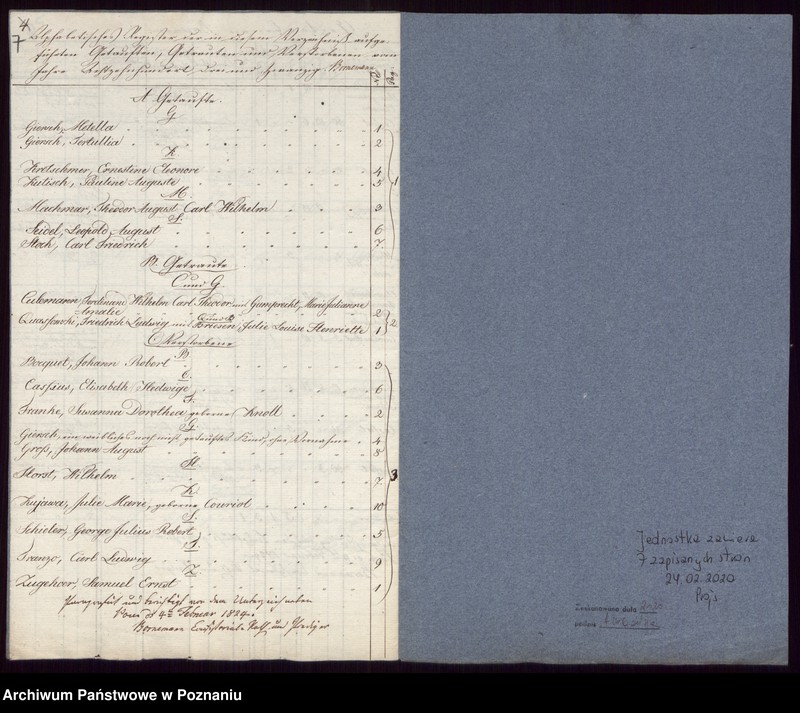 4
7
Alphabetisches Register der in diesem Verzeichniß aufge-
führten Getauften, Getrauten und Verstorbenen vom
Jahre Achtzehnhundert drei und zwanzig. Bornemann
No Pag.
A Getaufte.
G
Giersch, Metella 1
Giersch, Tertullia 2
K
Kretschmer, Ernestine Eleonore 4
Kutisch, Pauline Auguste 5
1
M.
Machmar, Theodor August Carl Wilhelm 3
S.
Seidel, Leopold August 6
Stock, Carl Friedrich 7.
B. Getraute
C und G.
Culemann, Ferdinand Wilhelm Carl Theodor und Gumprecht, Marie Julianne
Amalie 2
Q und B
Quassowski, Friedrich Ludwig mit Briesen, Julie Louise Henriette 1
2
C Verstorbene
B
Bocquet, Johann Robert 3
C.
Cassius, Elisabeth Hedwige 6
F.
Franke, Susanna Dorothea geborne Knoll 2
G.
Giersch, ein weibliches noch nicht getauftes Kind, ohne Vornahme 4
Groß, Johann August 8
H.
Horst, Wilhelm 7.
3
K.
Kujawa, Julie Marie, geborne Couriol 10
S.
Schieler, George Julius Robert 5
T.
Tranzo, Carl Ludwig 9
Z.
Zugehoer, Samuel Ernst 1
Paragraphirt und berichtigt von dem Unterzeichneten
Posen d 4t Februar 1824.
Bornemann Consistorial-Rath und Prediger
Jednostka zawiera
7 zapisanych stron
24.02.2020
Zmikrofilmowano data
podpis
Archiwum Państwowe w Poznaniu